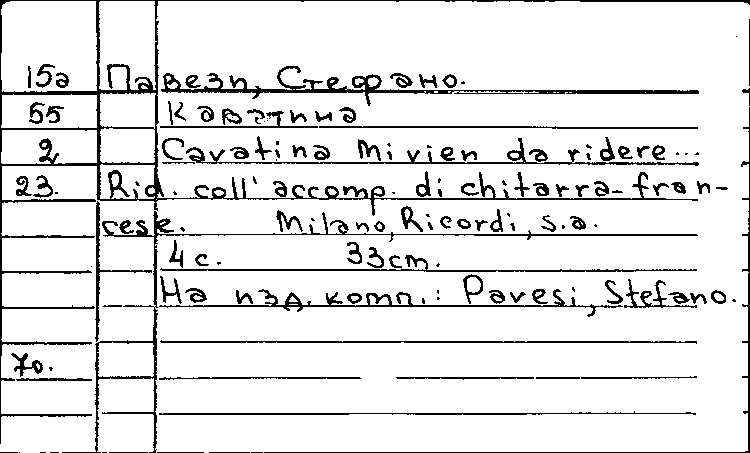 15а Павези, Стефано.
55 Каватина
2 Cavatina Mi vien da ridere...
23. Rid. coll' accomp. di chitarra-fran-
cese. Milano, Ricordi, s.a.
4 с. 33cm.
На изд. комп.: Pavesi, Stefano.
70.